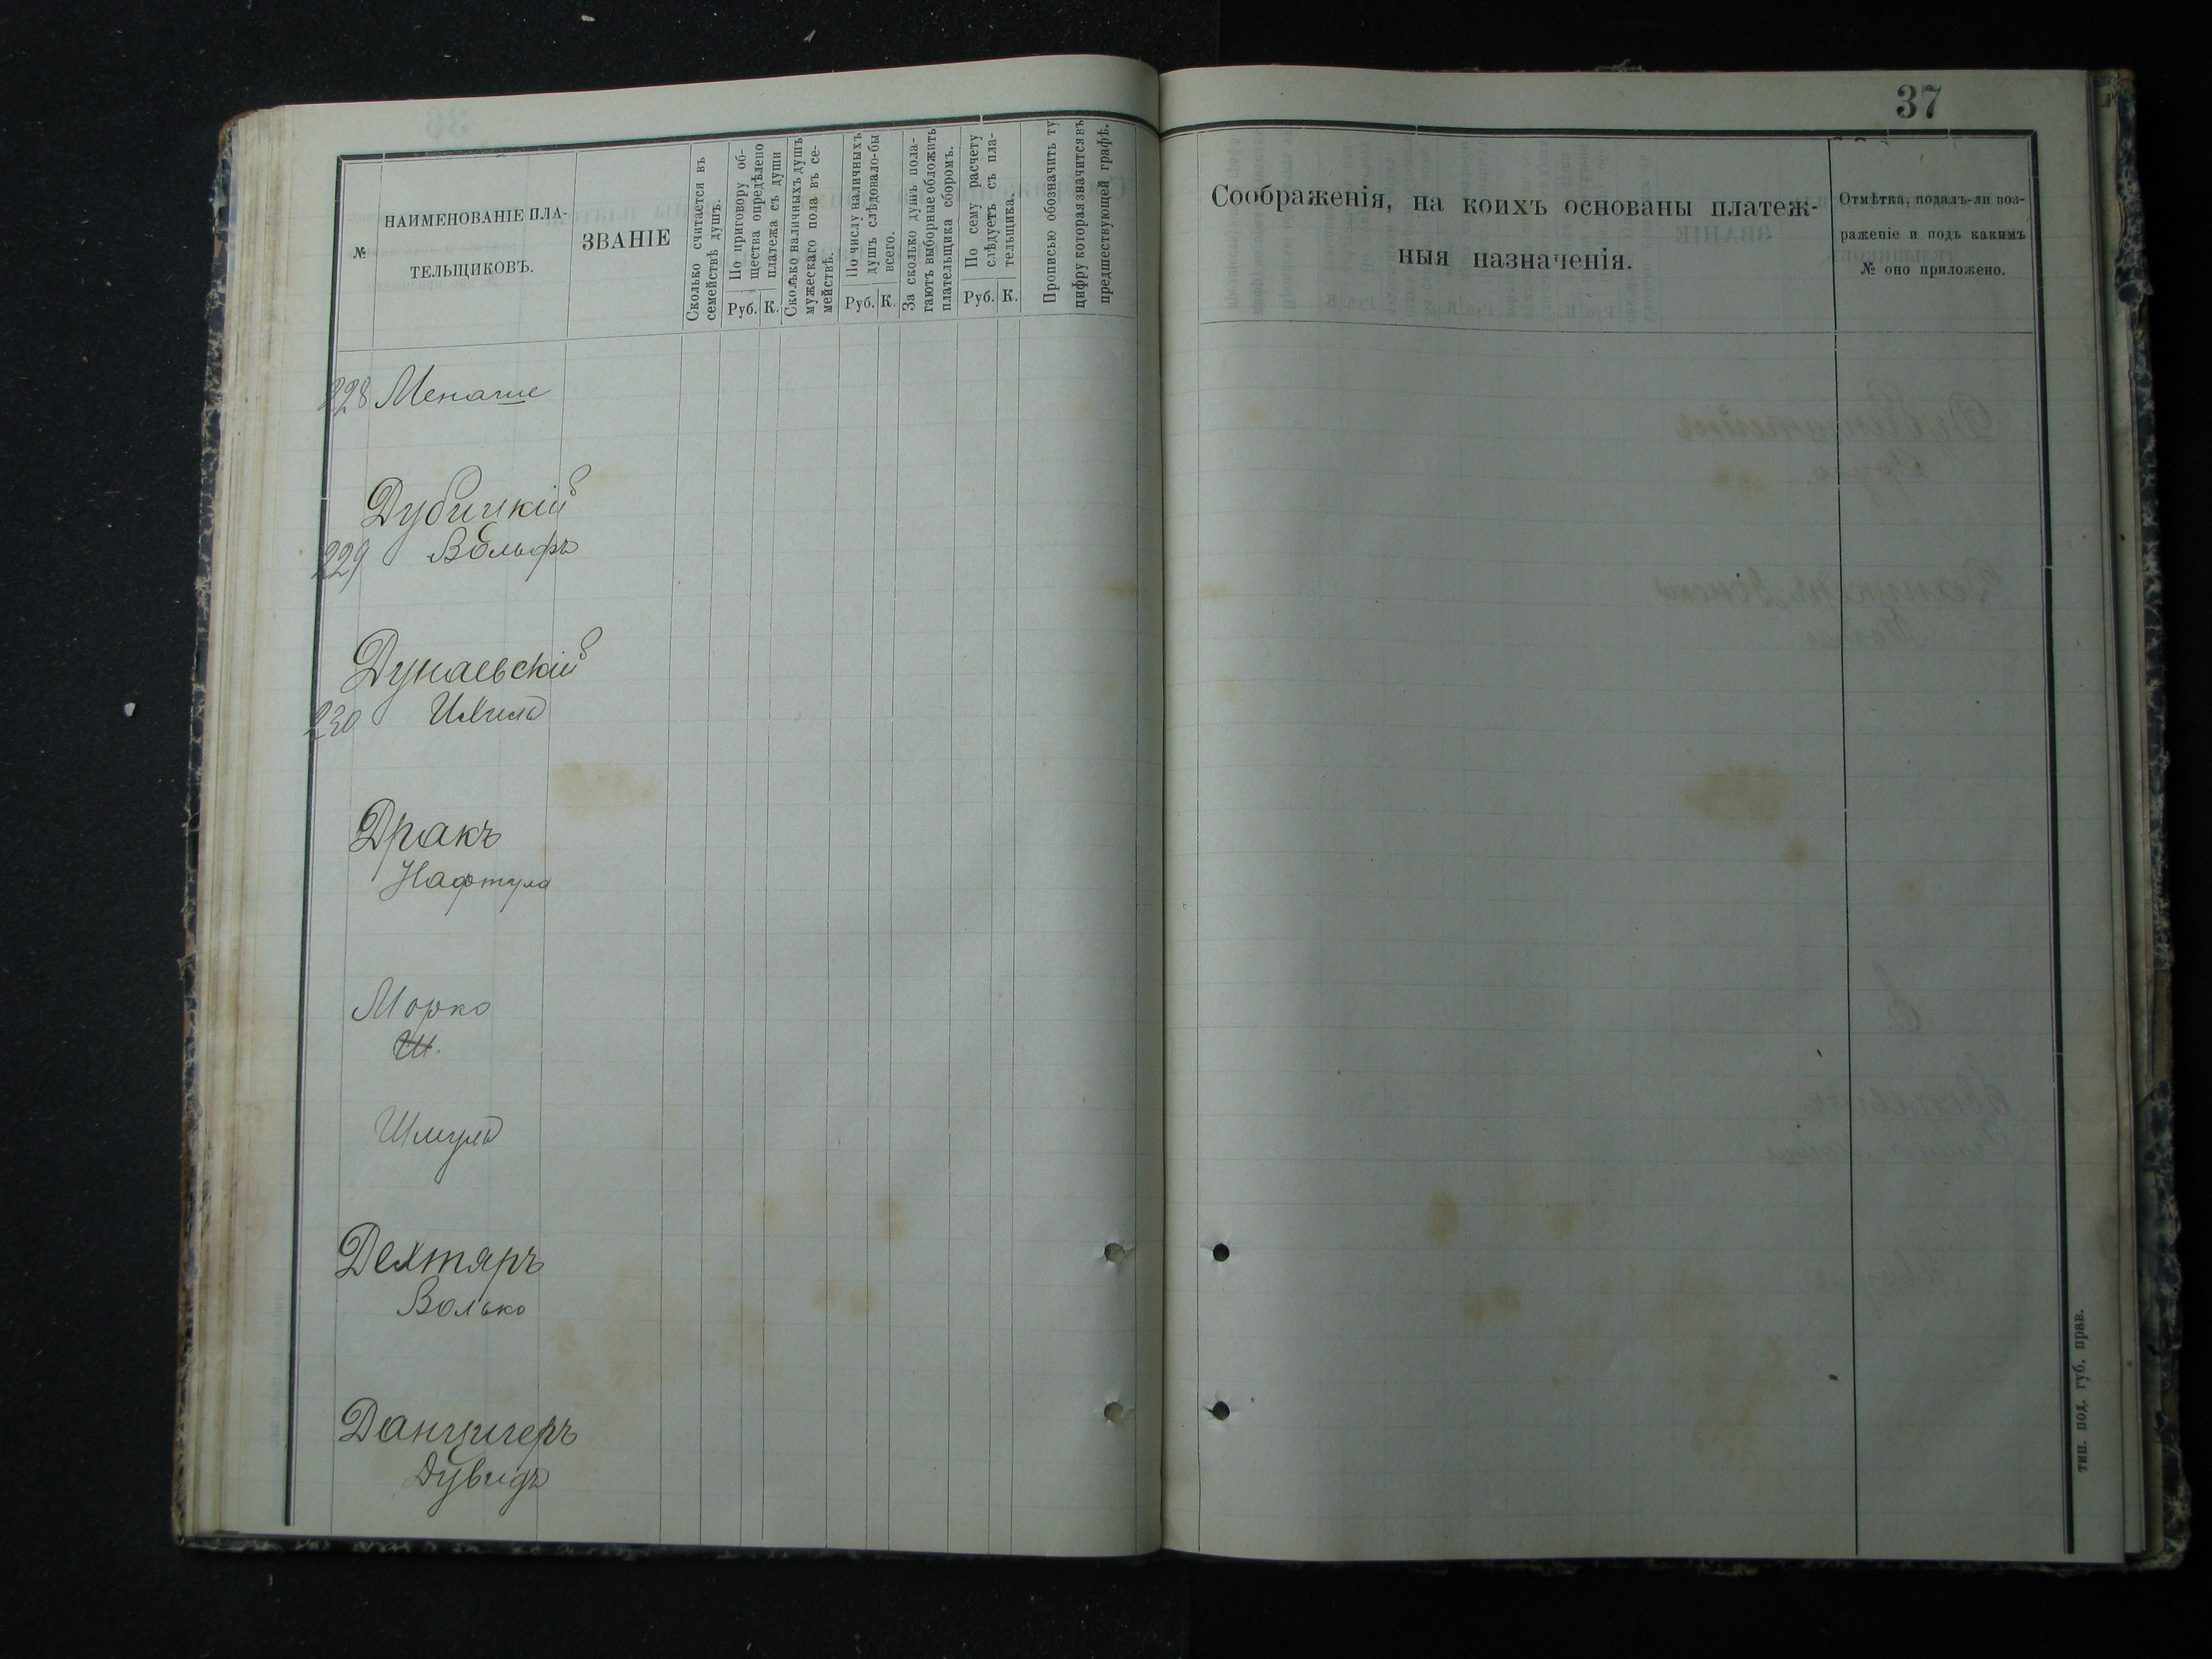 37
№
НАИМЕНОВАНІЕ ПЛА-
ТЕЛЬЩИКОВЪ.
ЗВАНІЕ
Сколько считается въ
семействѣ душъ.
По приговору об-
щества опредѣлено
платежа съ души
Руб. К.
Сколько наличныхъ душъ
мужескаго пола въ се-
мействѣ.
По числу наличныхъ
душъ слѣдовало-бы
всего.
Руб. К.
За сколько душъ пола-
гаютъ выборные обложить
плательщика сборомъ.
По сему расчету
слѣдуетъ съ пла-
тельщика.
Руб. К.
Прописью обозначить ту
цифру которая значится въ
предшествующей графѣ.
Соображенія, на коихъ основаны платеж-
ныя назначенія.
Отмѣтка, подалъ-ли воз-
раженіе и подъ какимъ
№ оно приложено.
228 Менаше
Дубицкій
229 Вольфъ
Дунаевскій
230 Ихилъ
Дракъ
Нафтула
Морко
Ш.
Шмулъ
Дехтяръ
Волько
Данцигеръ
Дувидъ
тип. под. губ. прав.